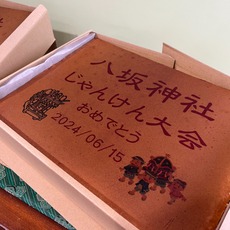 八坂神社
じゃんけん大会
おめでとう
2024/06/15